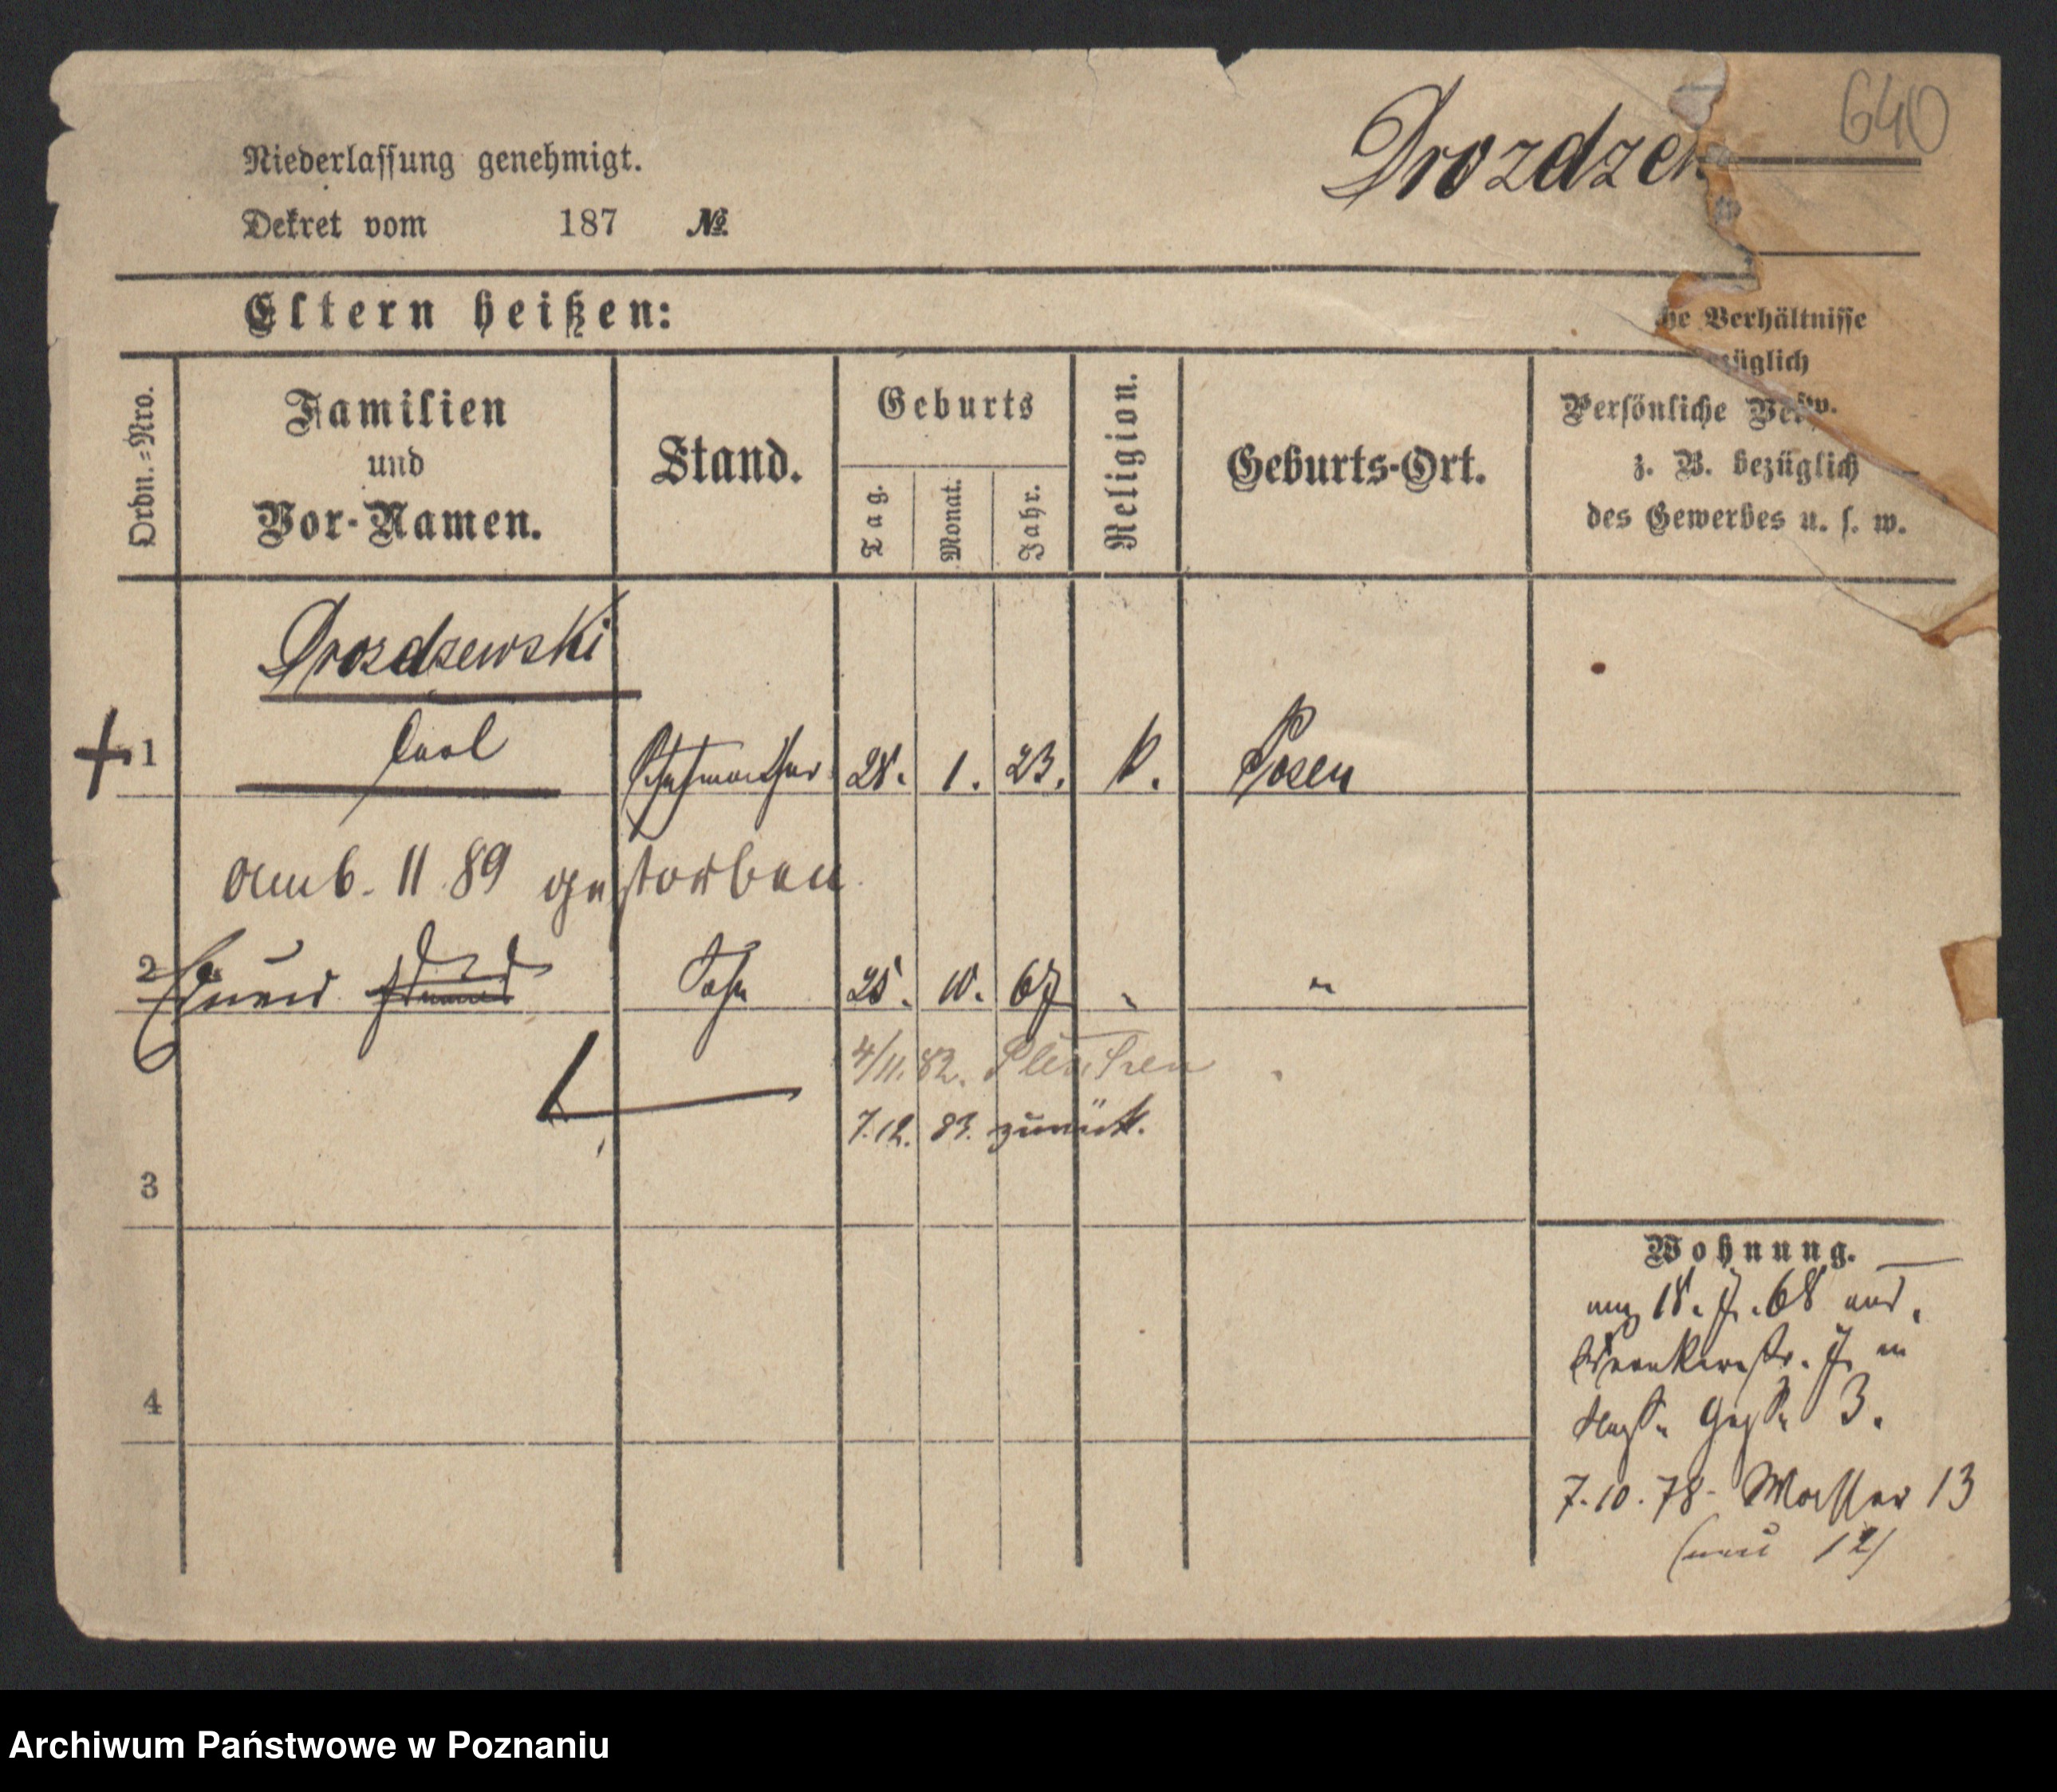 640
Drozdzew
Niederlassung genehmigt.
Dekret vom 187 №
Eltern heißen:
he Verhältnisse
züglich
Ordn.=Nro.
Familien
und
Vor-Namen.
Stand.
Geburts
Tag.
Monat.
Jahr.
Religion.
Geburts-Ort.
Persönliche Ver
z. B. bezüglich
des Gewerbes u. s. w.
Drozdzewski
+ 1 Carl Schuhmacher 28. 1. 23. k. Posen
am 6. 11 89 gestorben
2 Sohn 25. 10. 67 " "
4/11.82. Pleschen
7.12. 83. zurück.
3
4
Wohnung.
18. 7. 68
7. in
3.
7.10.78. Wasser 13
(neu 12)
Archiwum Państwowe w Poznaniu